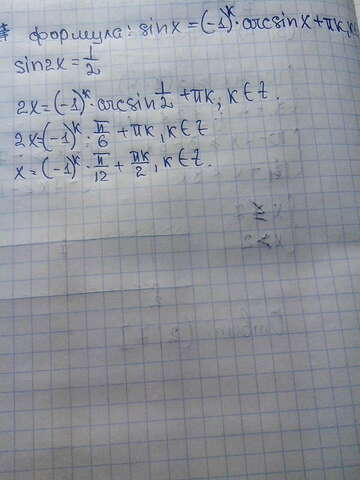 * формула: sinx = (-1)^k · arcsinx + πk, к
sin2x = 1/2
2x = (-1)^k · arcsin 1/2 + πk, k ∈ Z.
2x = (-1)^k · π/6 + πk, k ∈ Z
x = (-1)^k · π/12 + πk/2, k ∈ Z.